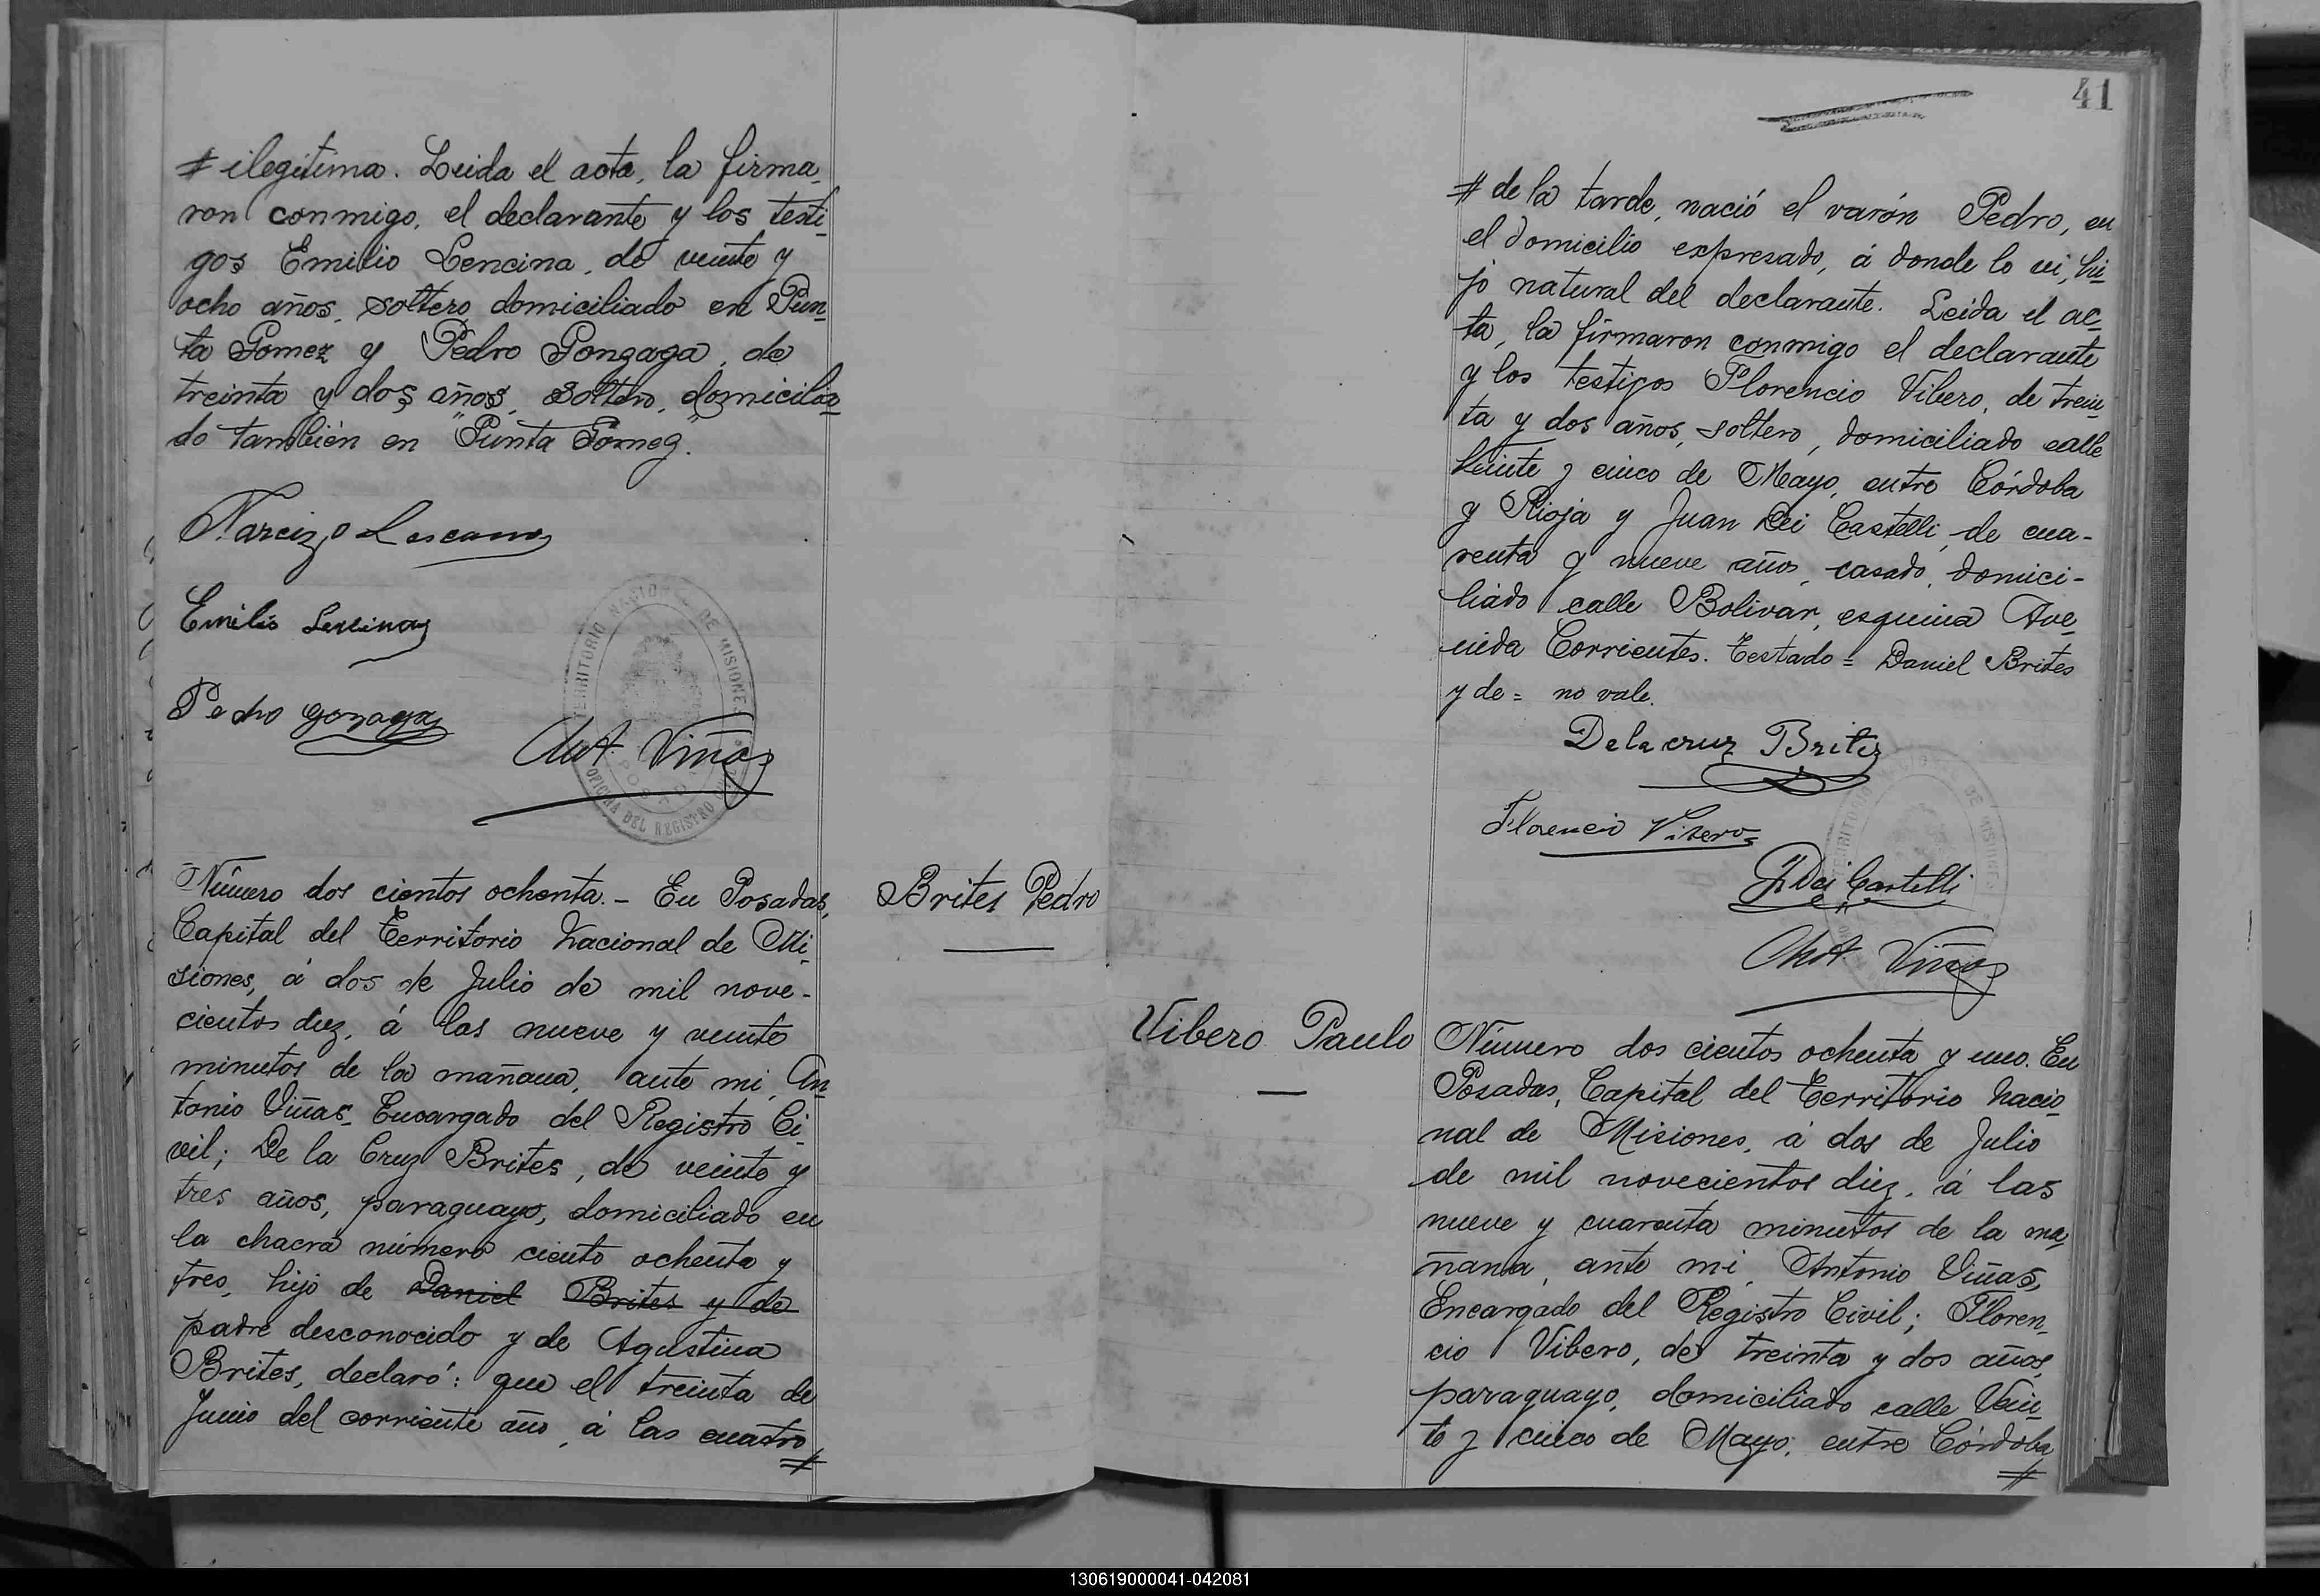 # ilegítima. Leida el acta, la firma-
ron conmigo, el declarante y los testi-
gos Emilio Lencina, de veinte y
ocho años, soltero, domiciliado en Pun-
ta Gomez y Pedro Gonzaga, de
treinta y dos años, soltero, domicilia-
do también en "Punta Gomez".
Narcizo Lescano
Emilio Lencina
Pedro Gonzaga
Ant. Viñas
TERRITORIO NACIONAL DE MISIONES
POSADAS
OFICINA DEL REGISTRO
Número dos cientos ochenta.- En Posadas,
Capital del Territorio Nacional de Mi-
siones, á dos de Julio de mil nove-
cientos diez, á las nueve y veinte
minutos de la mañana, ante mi, An-
tonio Viñas, Encargado del Registro Ci-
vil; De la Cruz Brites, de veinte y
tres años, paraguayo, domiciliado en
la chacra número ciento ochenta y
tres, hijo de Daniel Brites y de
padre desconocido y de Agustina
Brites, declaró: que el treinta de
Junio del corriente año, á las cuatro
#
Brites Pedro
41
# de la tarde, nació el varón Pedro, en
el domicilio expresado, á donde lo vi, hi-
jo natural del declarante. Leida el ac-
ta, la firmaron conmigo el declarante
y los testigos Florencio Vibero, de trein-
ta y dos años, soltero, domiciliado calle
Veinte y cinco de Mayo, entre Córdoba
y Rioja y Juan Dei Castelli, de cua-
renta y nueve años, casado, domici-
liado calle Bolivar, esquina Ave-
nida Corrientes. Testado = Daniel Brites
y de = no vale.
Delacruz Brites
Florencio Vibero
J Dei Castelli
Ant. Viñas
Vibero Paulo
Número dos cientos ochenta y uno. En
Posadas, Capital del Territorio Nacio-
nal de Misiones, á dos de Julio
de mil novecientos diez, á las
nueve y cuarenta minutos de la ma-
ñana, ante mi, Antonio Viñas,
Encargado del Registro Civil; Floren-
cio Vibero, de treinta y dos años,
paraguayo, domiciliado calle Vein-
te y cinco de Mayo, entre Córdoba
#
130619000041-042081